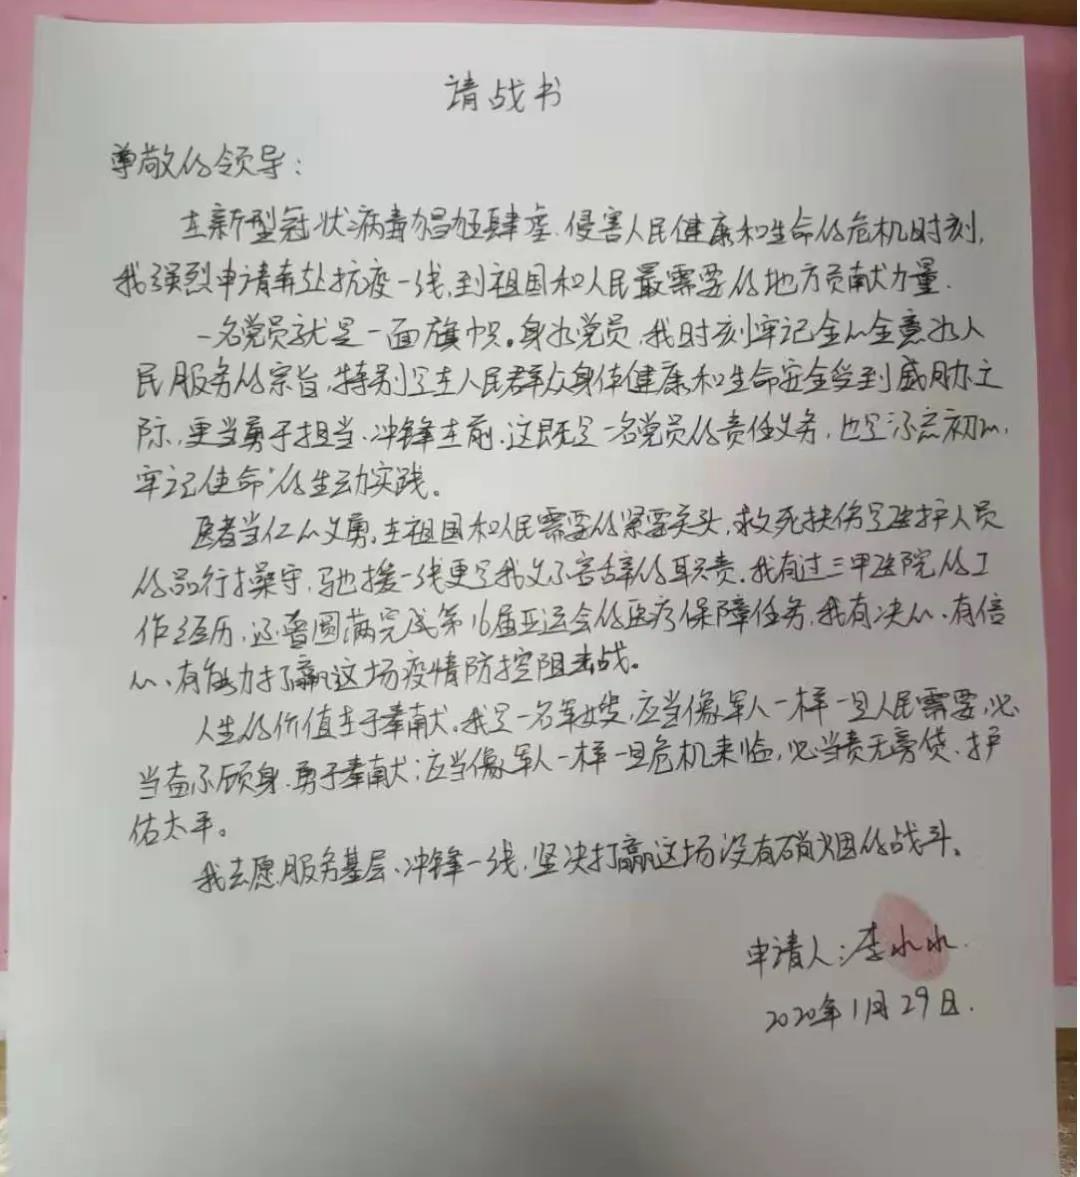 请战书
尊敬的领导：
在新型冠状病毒猖狂肆虐、侵害人民健康和生命的危机时刻，
我强烈申请奔赴抗疫一线，到祖国和人民最需要的地方贡献力量．
一名党员就是一面旗帜。身为党员，我时刻牢记全心全意为人
民服务的宗旨，特别是在人民群众身体健康和生命安全受到威胁之
际，更当勇于担当、冲锋在前．这既是一名党员的责任义务，也是“不忘初心，
牢记使命”的生动实践。
医者当仁心义勇，在祖国和人民需要的紧要关头，救死扶伤是医护人员
的品行操守，驰援一线更是我义不容辞的职责．我有过三甲医院的工
作经历，还曾圆满完成第16届亚运会的医疗保障任务，我有决心、有信
心、有能力打赢这场疫情防控阻击战。
人生的价值在于奉献．我是一名军嫂，应当像军人一样一旦人民需要，必
当奋不顾身、勇于奉献；应当像军人一样一旦危机来临，必当责无旁贷、护
佑太平。
我志愿服务基层、冲锋一线，坚决打赢这场没有硝烟的战斗。
申请人：李
2020年1月29日．